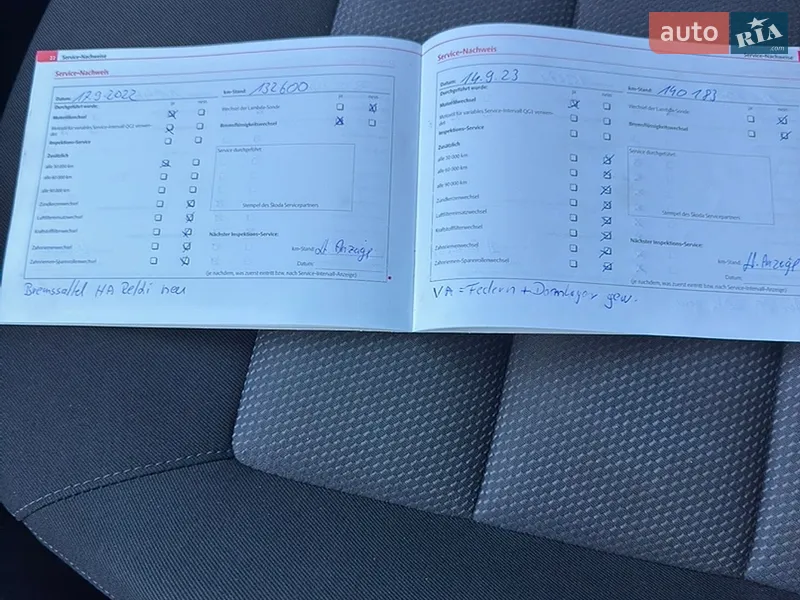 auto RIA .com
23 Service-Nachweise
Service-Nachweis
Datum: 17.9.2022 km-Stand: 132600
Durchgeführt wurde: ja nein ja nein
Motorölwechsel
Wechsel der Lambda-Sonde
Motoröl für variables Service-Intervall QG1 verwendet
Bremsflüssigkeitswechsel
Inspektions-Service
Zusätzlich
Service durchgeführt:
alle 30 000 km
alle 60 000 km
alle 90 000 km
Zündkerzenwechsel
Stempel des Škoda Servicepartners
Luftfiltereinsatzwechsel
Kraftstofffilterwechsel
Nächster Inspektions-Service:
Zahnriemenwechsel
km-Stand: lt. Anzeige
Zahnriemen-Spannrollenwechsel
Datum:
(je nachdem, was zuerst eintritt bzw. nach Service-Intervall-Anzeige)
Bremssattel HA neu
Service-Nachweise
Service-Nachweis
Datum: 14.9.23 km-Stand: 140183
Durchgeführt wurde: ja nein ja nein
Motorölwechsel
Wechsel der Lambda-Sonde
Motoröl für variables Service-Intervall QG1 verwendet
Bremsflüssigkeitswechsel
Inspektions-Service
Zusätzlich
Service durchgeführt:
alle 30 000 km
alle 60 000 km
alle 90 000 km
Zündkerzenwechsel
Stempel des Škoda Servicepartners
Luftfiltereinsatzwechsel
Kraftstofffilterwechsel
Nächster Inspektions-Service:
Zahnriemenwechsel
km-Stand: lt. Anzeige
Zahnriemen-Spannrollenwechsel
Datum:
(je nachdem, was zuerst eintritt bzw. nach Service-Intervall-Anzeige)
VA = Federn + Domlager gew.